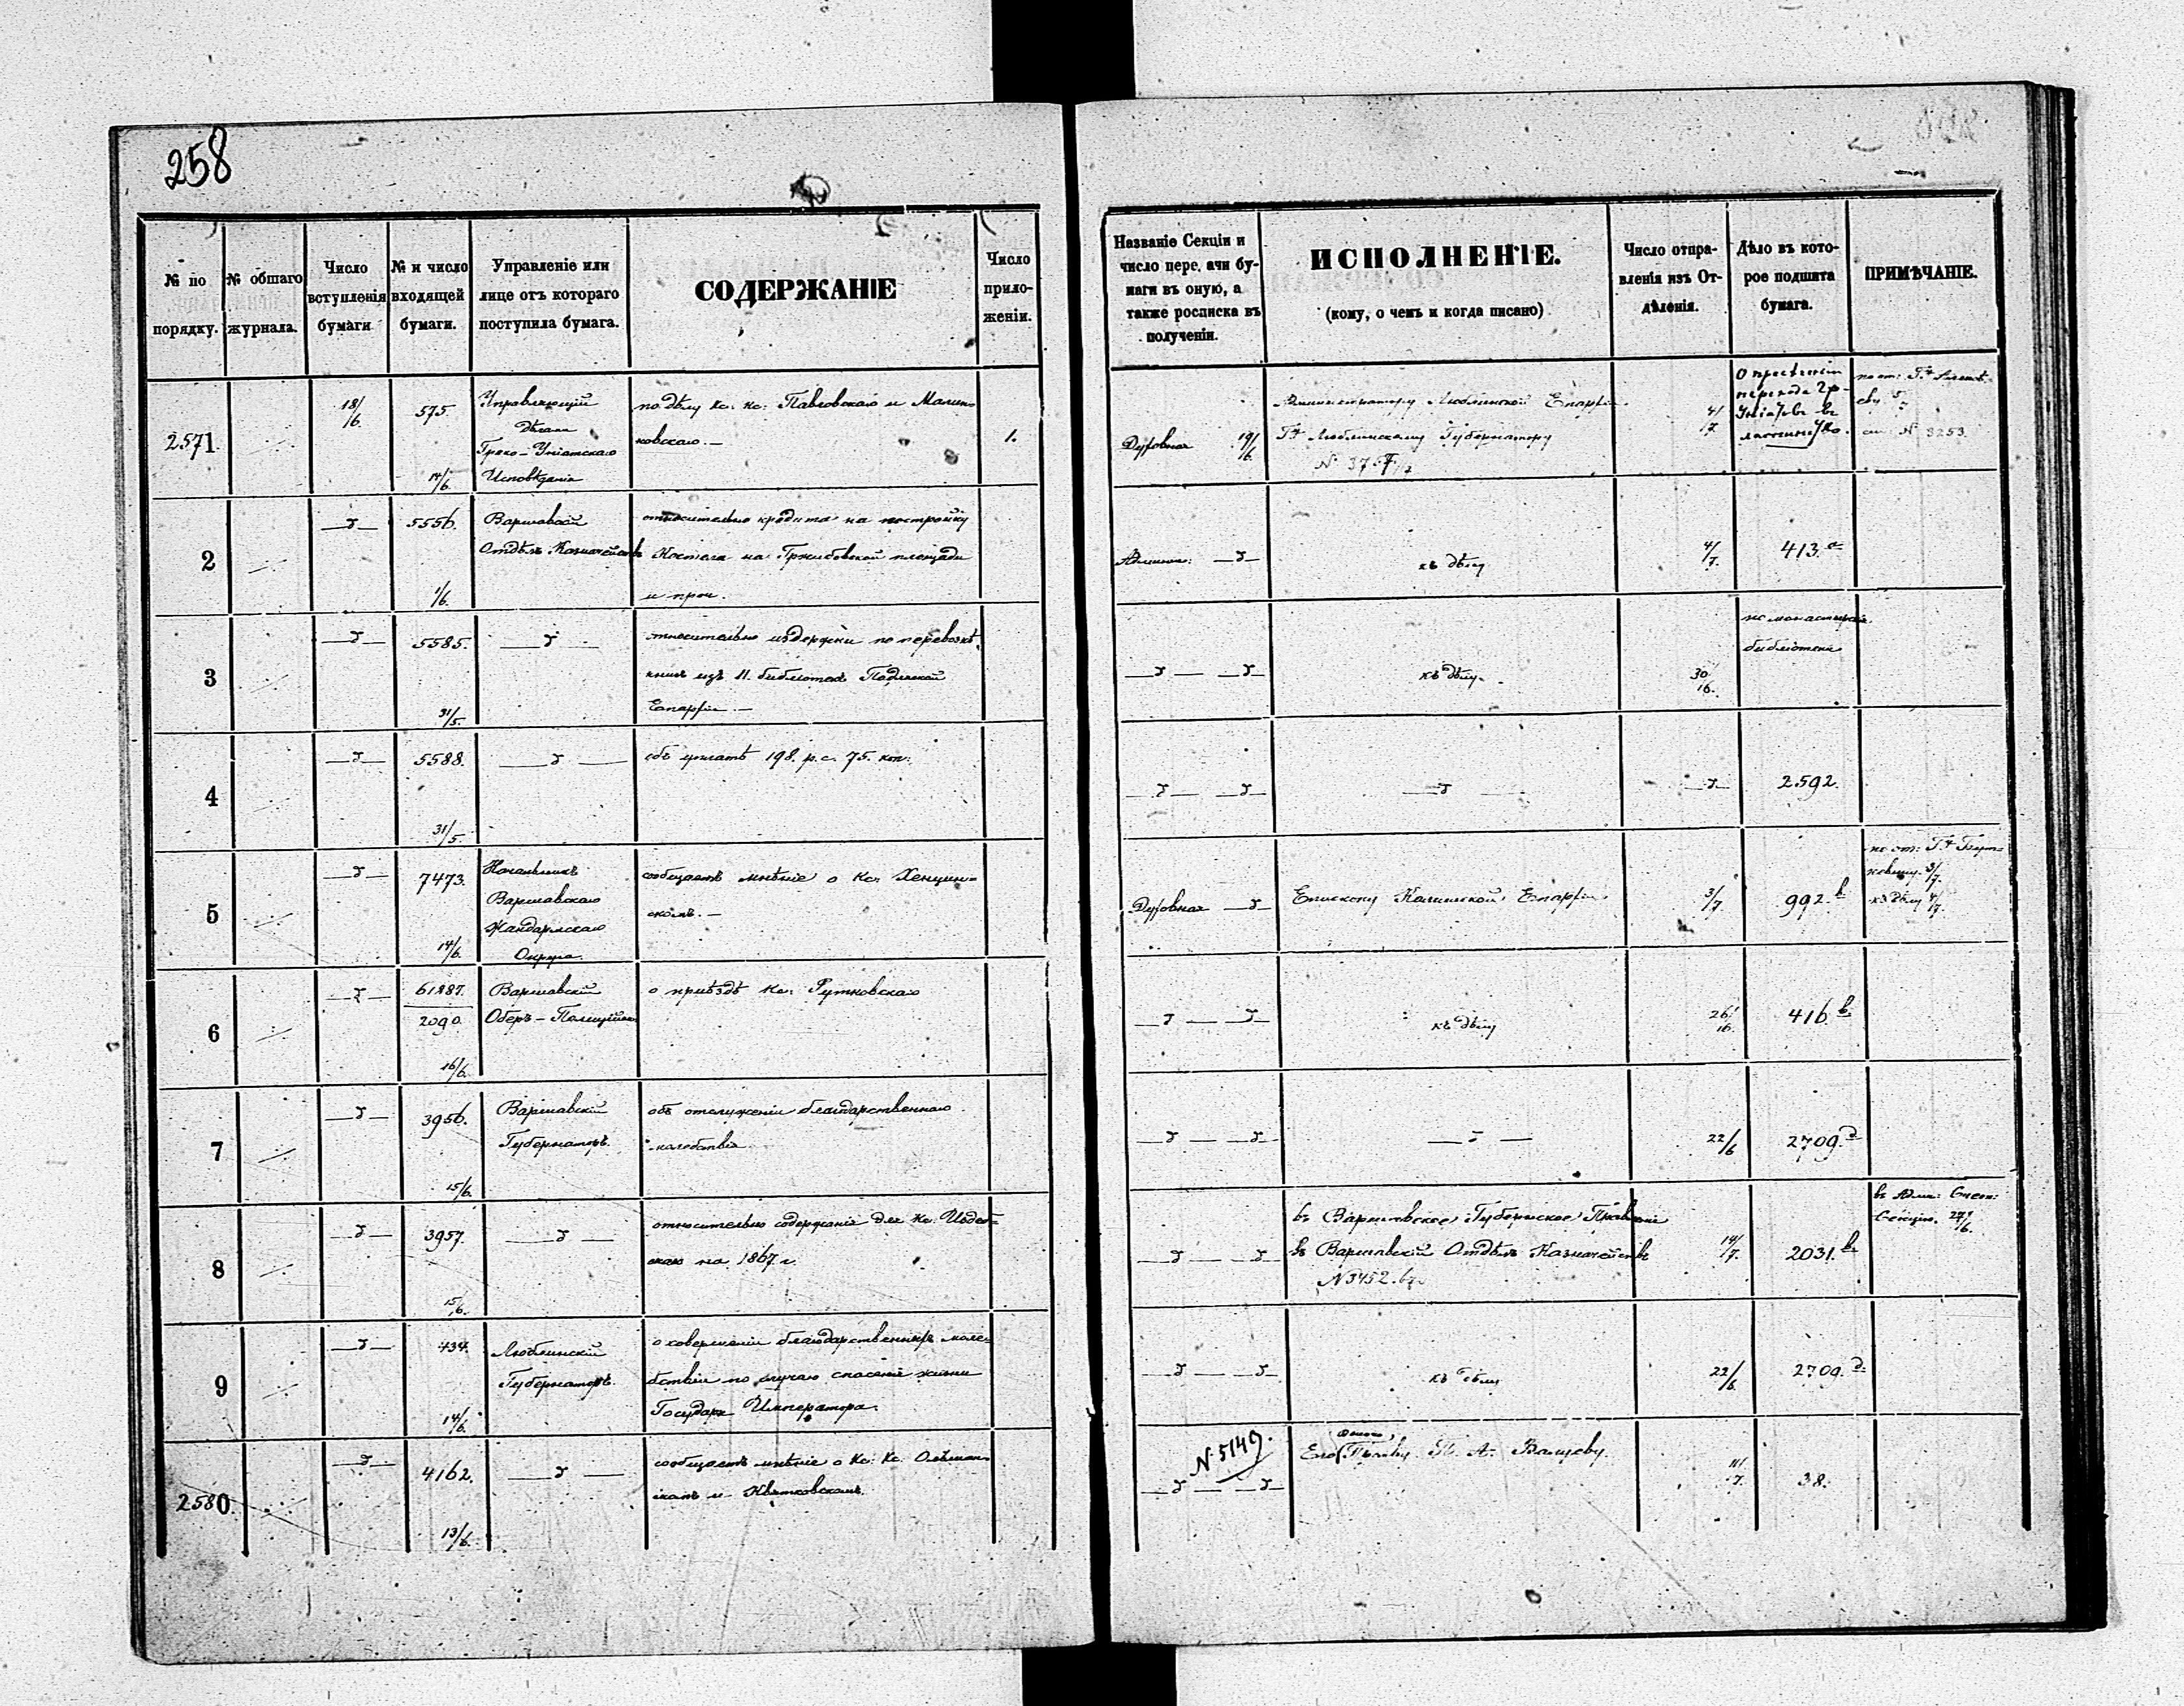 258
№ по порядку.
№ общаго журнала.
Число вступленія бумаги
№ и число входящей бумаги.
Управленіе или лице отъ котораго поступила бумага.
СОДЕРЖАНІЕ
Число приложеніи.
Названіе Секціи и число пере. ачи бумаги въ оную, а также росписка въ полученіи.
ИСПОЛНЕНІЕ.
(кому, о чемъ и когда писано)
Число отправленія изъ Отдѣленія.
Дѣло въ которое подшита бумага.
ПРИМѢЧАНІЕ.
2571.
18/6.
575.
14/6.
Управляющій
дѣлами
Греко-Уніатскаго
Исповѣданія
по дѣлу Кс: Кс: Павловскаго и Малин-
ковскаго.—
1.
Духовная 19/6.
Администратору Люблинской Епархіи.
Гну Люблинскому Губернатору
4/7.
перехода Гр-
Уніатовъ въ
латинство.
см. N 3253.
2
5556.
1/6.
Варшавскій
Отдѣлъ Казначейства
относительно кредита на постройку
Костела на Гржибовской площади
и проч.
Админис:
къ дѣлу
4/7.
413.
3
5585.
31/5.
относительно издержки по перевозкѣ
книгъ изъ 11. библіотекъ Подляской
Епархіи.—
къ дѣлу.
30/6.
библіотеки
4
5588.
31/5.
объ уплатѣ 198. р.с. 75. коп:
2592.
5
7473.
14/6.
Начальникъ
Варшавскаго
Жандармскаго
Округа.
сообщаетъ мнѣніе о Кс. Хенцин-
скомъ.—
Духовная
Епископу Калишской Епархіи.
3/7
992.в
къ дѣлу 4/7.
6
61287.
2090.
16/6.
Варшавскій
Оберъ-Полицій
о пріѣздѣ Кс: Рутковскаго
къ дѣлу
26/6.
416.в
7
3956.
15/6.
Варшавскій
Губернаторъ.
объ отслуженіи благодарственнаго
молебствія
22/6
2709.
8
3957.
15/6.
относительно содержанія для Кс.
скаго на 1867. г.
въ Варшавское Губернское Правленіе
въ Варшавскій Отдѣлъ Казначейства
N 3452.
14/7.
2031.в
Секцію. 27/6.
9
434.
14/6.
Люблинскій
Губернаторъ.
о совершеніи благодарственныхъ моле-
бствіи по случаю спасенія жизни
Государя Императора.
къ дѣлу
22/6.
2709.
2580.
4162.
13/6.
сообщаетъ мнѣніе о Кс: Кс.
и Квятковскомъ.
N 5149.
П. А. Валуеву.
38.